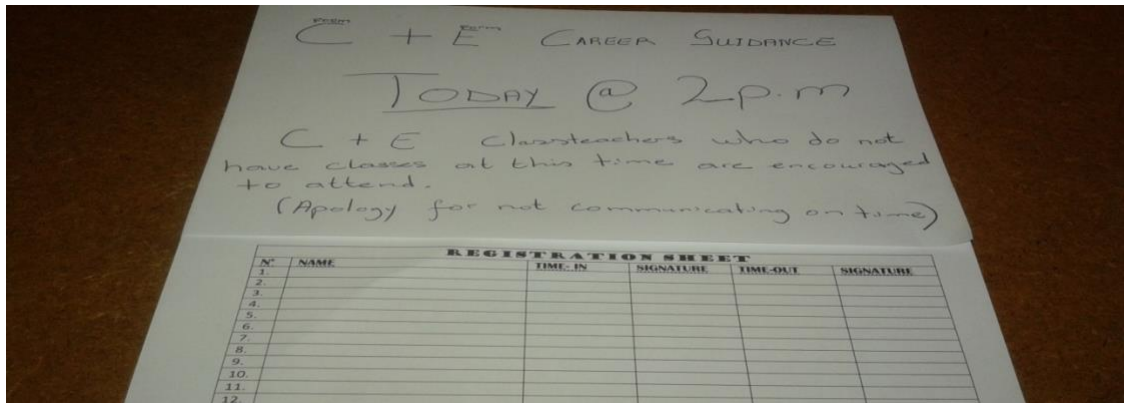 Form Form
C + E CAREER GUIDANCE
TODAY @ 2p.m
C + E Classteachers who do not
have classes at this time are encouraged
to attend.
(Apology for not communicating on time)
REGISTRATION SHEET
N° NAME TIME-IN SIGNATURE TIME-OUT SIGNATURE
1.
2.
3.
4.
5.
6.
7.
8.
9.
10.
11.
12.